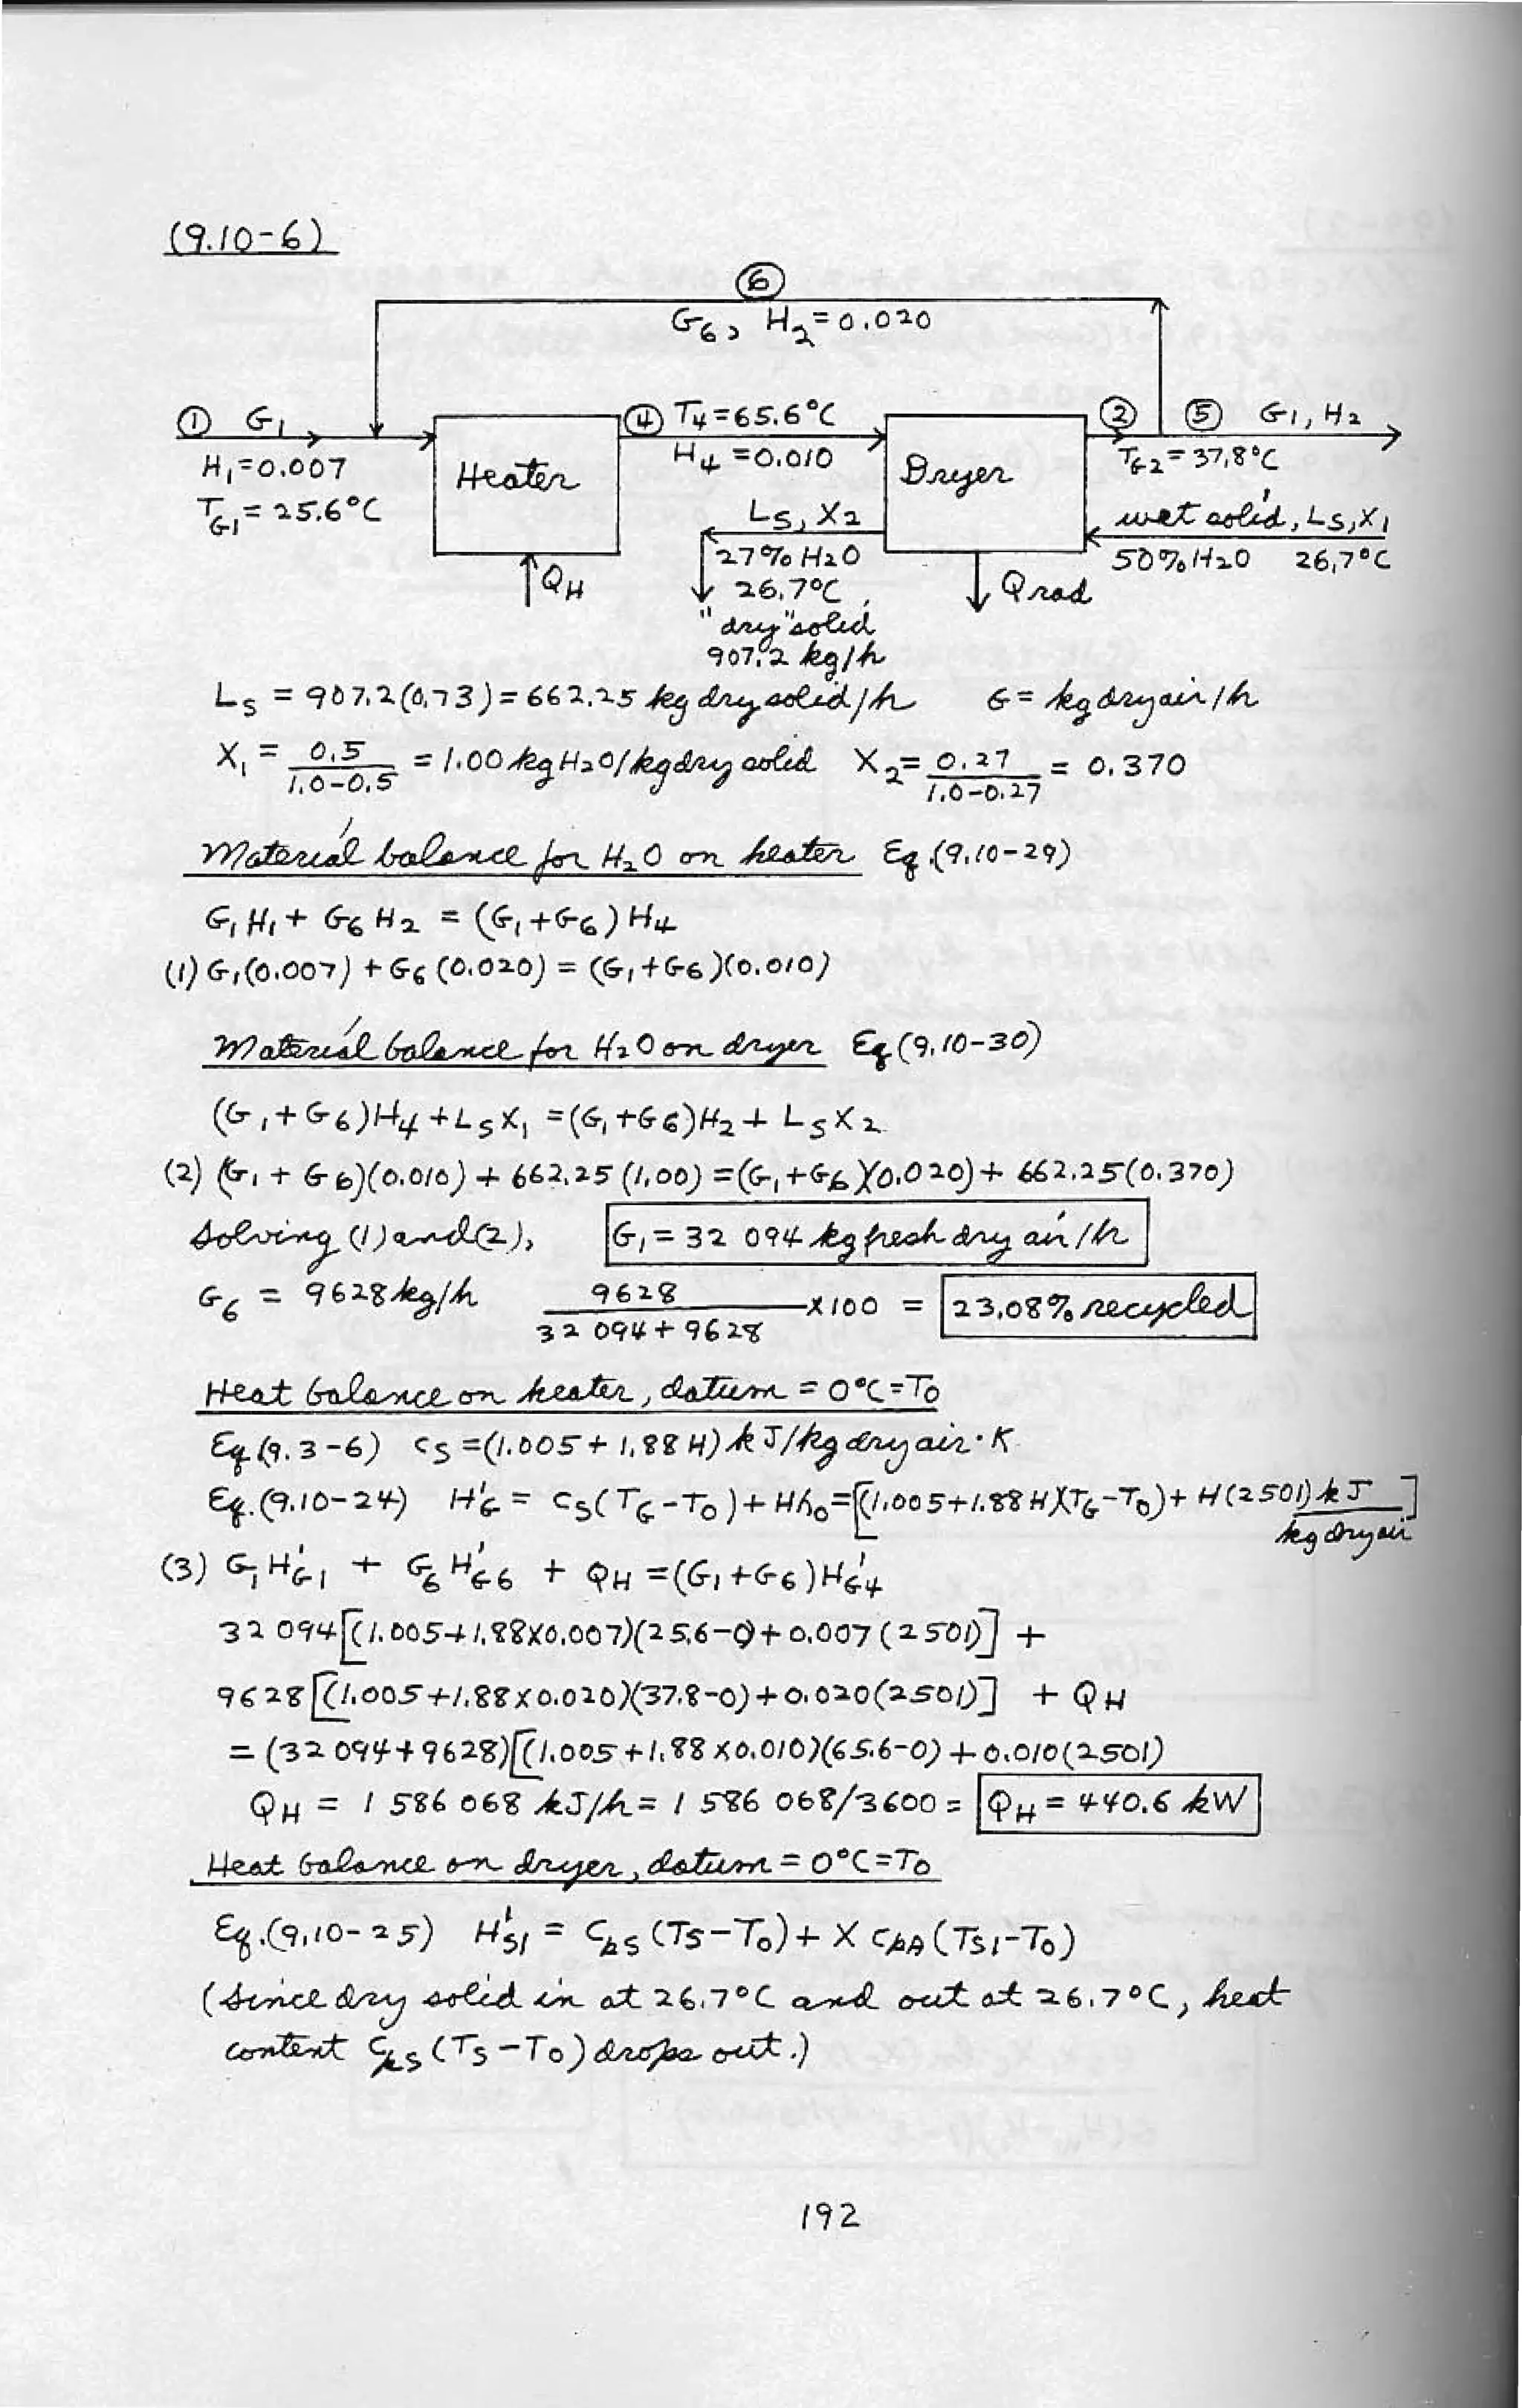 (9.10-6)
⑥
G6, H2=0.020
① G1
H1=0.007
TG1=25.6°C
Heater
QH
④ T4=65.6°C
H4=0.010
Dryer
② ⑤ G1, H2
TG2=37.8°C
LS, X2
27% H2O
26.7°C
"dry" solid
907.2 kg/h
Qrad
wet solid, LS, X1
50% H2O 26.7°C
LS = 907.2(0.73) = 662.25 kg dry solid/h G = kg dry air/h
X1 = 0.5/(1.0-0.5) = 1.00 kg H2O/kg dry solid X2 = 0.27/(1.0-0.27) = 0.370
Material balance for H2O on heater Eq.(9.10-29)
G1H1 + G6H2 = (G1+G6)H4
(1) G1(0.007) + G6(0.020) = (G1+G6)(0.010)
Material balance for H2O on dryer Eq(9.10-30)
(G1+G6)H4 + LSX1 = (G1+G6)H2 + LSX2
(2) (G1+G6)(0.010) + 662.25(1.00) = (G1+G6)(0.020) + 662.25(0.370)
Solving (1) and (2), G1 = 32 094 kg fresh dry air/h
G6 = 9628 kg/h 9628/(32 094+9628) x100 = 23.08% recycled
Heat balance on heater, datum = 0°C = T0
Eq.(9.3-6) cS = (1.005+1.88H) kJ/kg dry air·K
Eq.(9.10-24) H'G = cS(TG-T0) + Hh0 = [(1.005+1.88H)(TG-T0) + H(2501) kJ/kg dry air]
(3) G1H'G1 + G6H'G6 + QH = (G1+G6)H'G4
32 094[(1.005+1.88x0.007)(25.6-0)+0.007(2501)] +
9628[(1.005+1.88x0.020)(37.8-0)+0.020(2501)] + QH
= (32 094+9628)[(1.005+1.88x0.010)(65.6-0)+0.010(2501)
QH = 1 586 068 kJ/h = 1 586 068/3600 = QH = 440.6 kW
Heat balance on dryer, datum = 0°C = T0
Eq.(9.10-25) H'S1 = cpS(TS-T0) + X cpA(TS1-T0)
(Since dry solid in at 26.7°C and out at 26.7°C, heat
content cpS(TS-T0) drops out.)
192